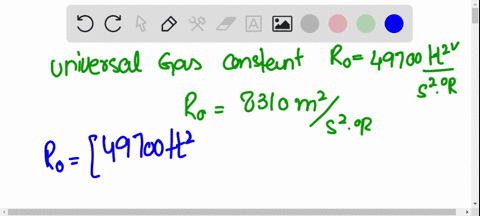 universal Gas constant R₀ = 49700 ft²/s².°R
R₀ = 8310 m²/s².°R
R₀ = [49700 ft²